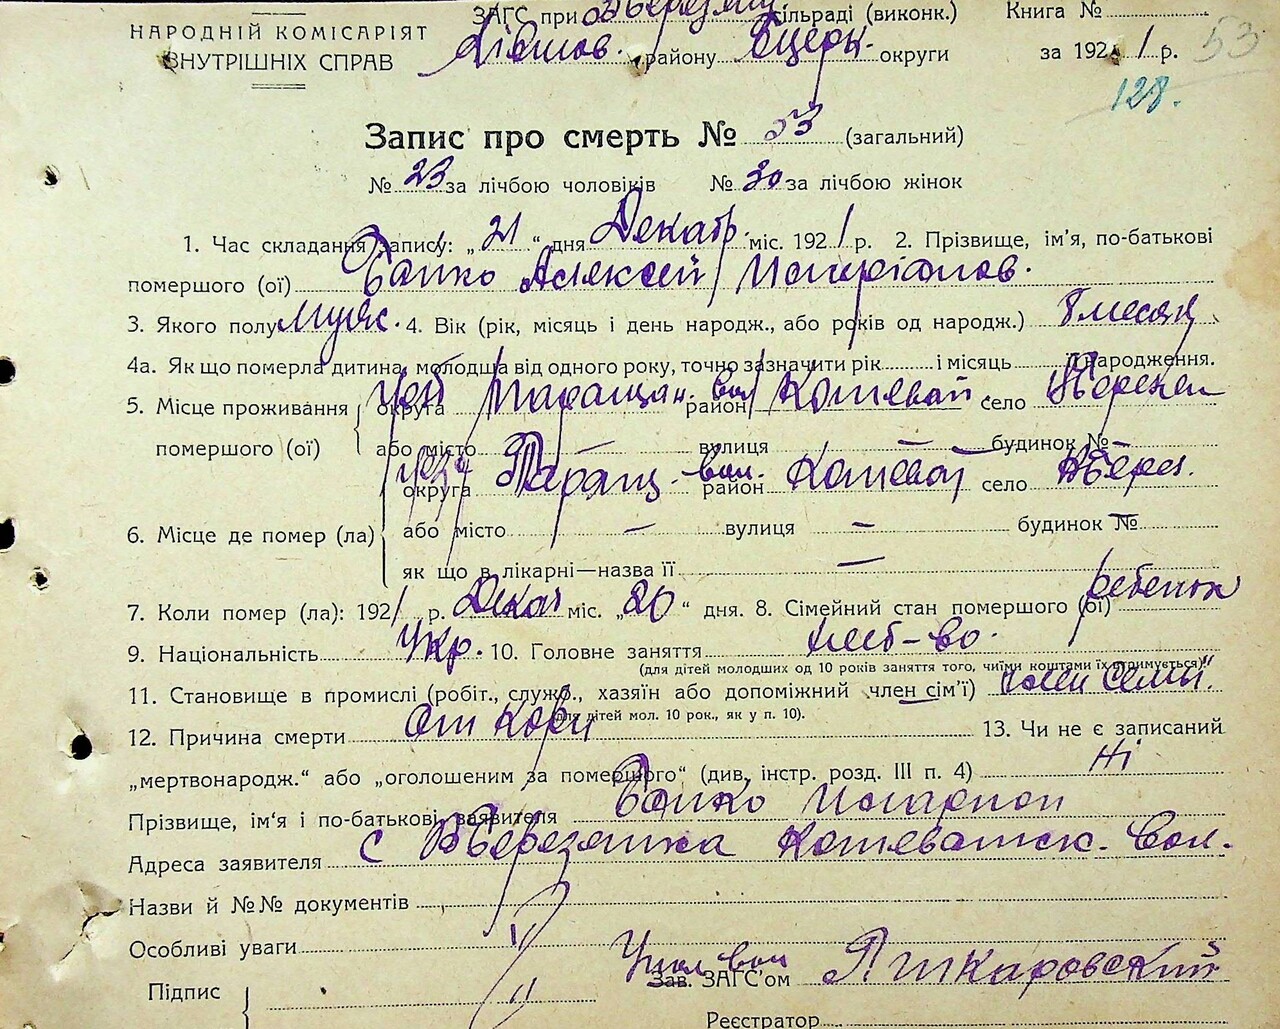 НАРОДНІЙ КОМІСАРІЯТ
ВНУТРІШНІХ СПРАВ
ЗАГС при сільраді (виконк.) Книга №
району Бцерк. округи за 1921 р. 53
128.
Запис про смерть № 53 (загальний)
№ 23 за лічбою чоловіків № 30 за лічбою жінок
1. Час складання запису: „21“ дня Декабр. міс. 1921 р. 2. Прізвище, ім'я, по-батькові
помершого (ої) Бойко Алексей
3. Якого полу Муж. 4. Вік (рік, місяць і день народж., або років од народж.) 8 месяц
4а. Як що померла дитина, молодша від одного року, точно зазначити рік і місяць її народження.
5. Місце проживання округа Таращан. вол район село
помершого (ої) або місто вулиця — будинок №
округа Таращ. вол. район село
6. Місце де помер (ла) або місто — вулиця — будинок № —
як що в лікарні—назва її —
7. Коли помер (ла): 1921 р. Декаб міс. „20“ дня. 8. Сімейний стан помершого (ої) ребенок
9. Національність Укр. 10. Головне заняття хлеб-во.
(для дітей молодших од 10 років заняття того, чиїми коштами їх утримується)
11. Становище в промислі (робіт., служб., хазяїн або допоміжний член сім'ї) член семьи.
(для дітей мол. 10 рок., як у п. 10).
12. Причина смерти От кори 13. Чи не є записаний
„мертвонародж.“ або „оголошеним за помершого“ (див. інстр. розд. III п. 4) Ні
Прізвище, ім'я і по-батькові заявителя Бойко
Адреса заявителя с Вол.
Назви й №№ документів
Особливі уваги
Підпис Зав. ЗАГС'ом
Реєстратор